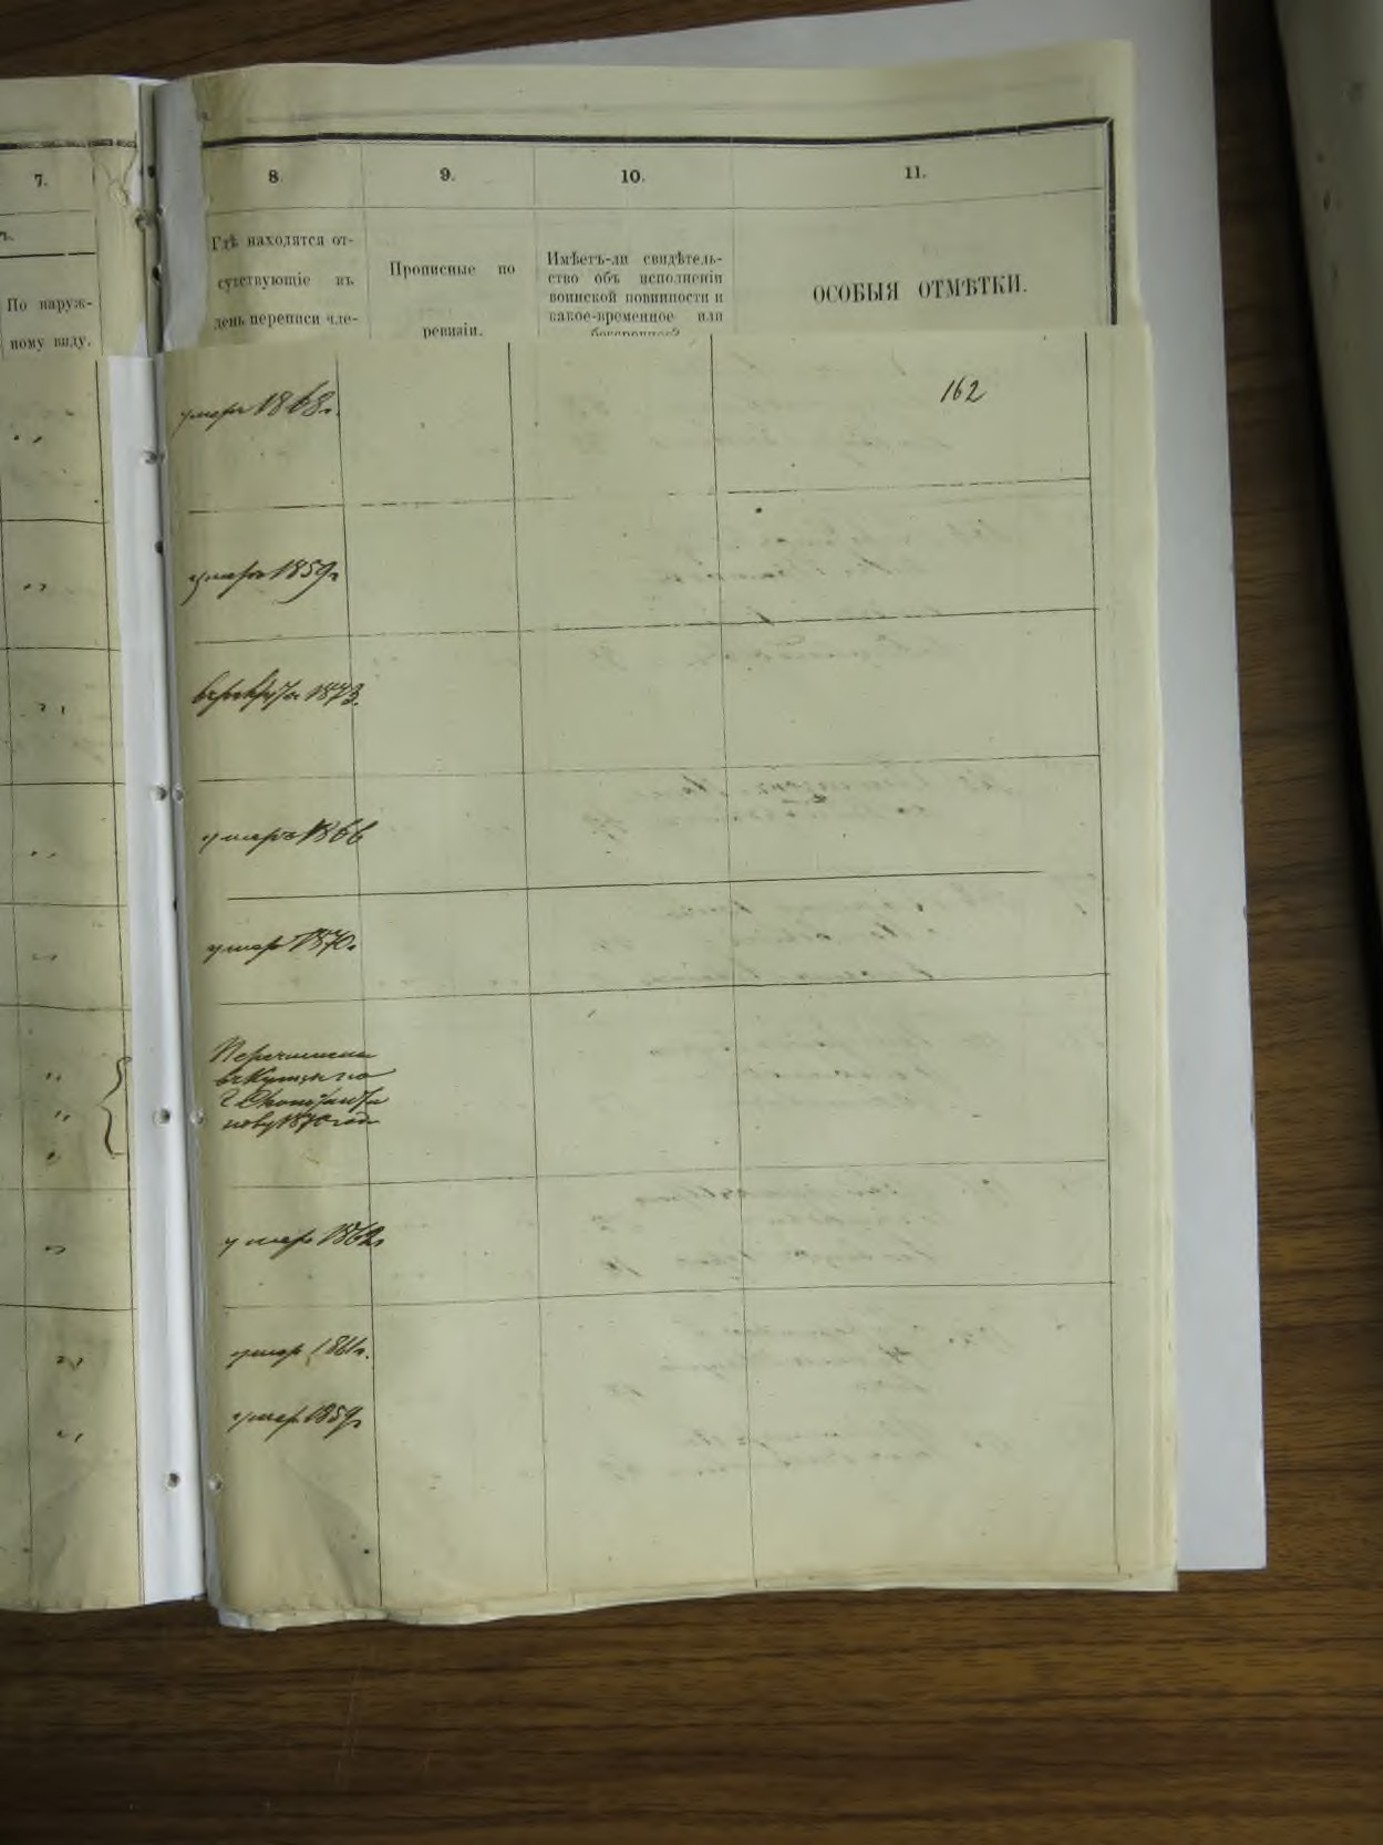 7.
8
9.
10.
11.
По наруж-
ному виду.
Гдѣ находятся от-
сутствующіе въ
день переписи чле-
Прописные по
ревизіи.
Имѣетъ-ли свидѣтель-
ство объ исполненіи
воинской повинности и
какое-временное или
безсрочное?
ОСОБЫЯ ОТМѢТКИ.
162
умеръ 1868г.
умеръ 1859г
1873.
умеръ 1866
умер 1870г.
Перечислены
въ Купцы по
г.
1870 год
умер 1862г
умер 1861г.
умер 1859г